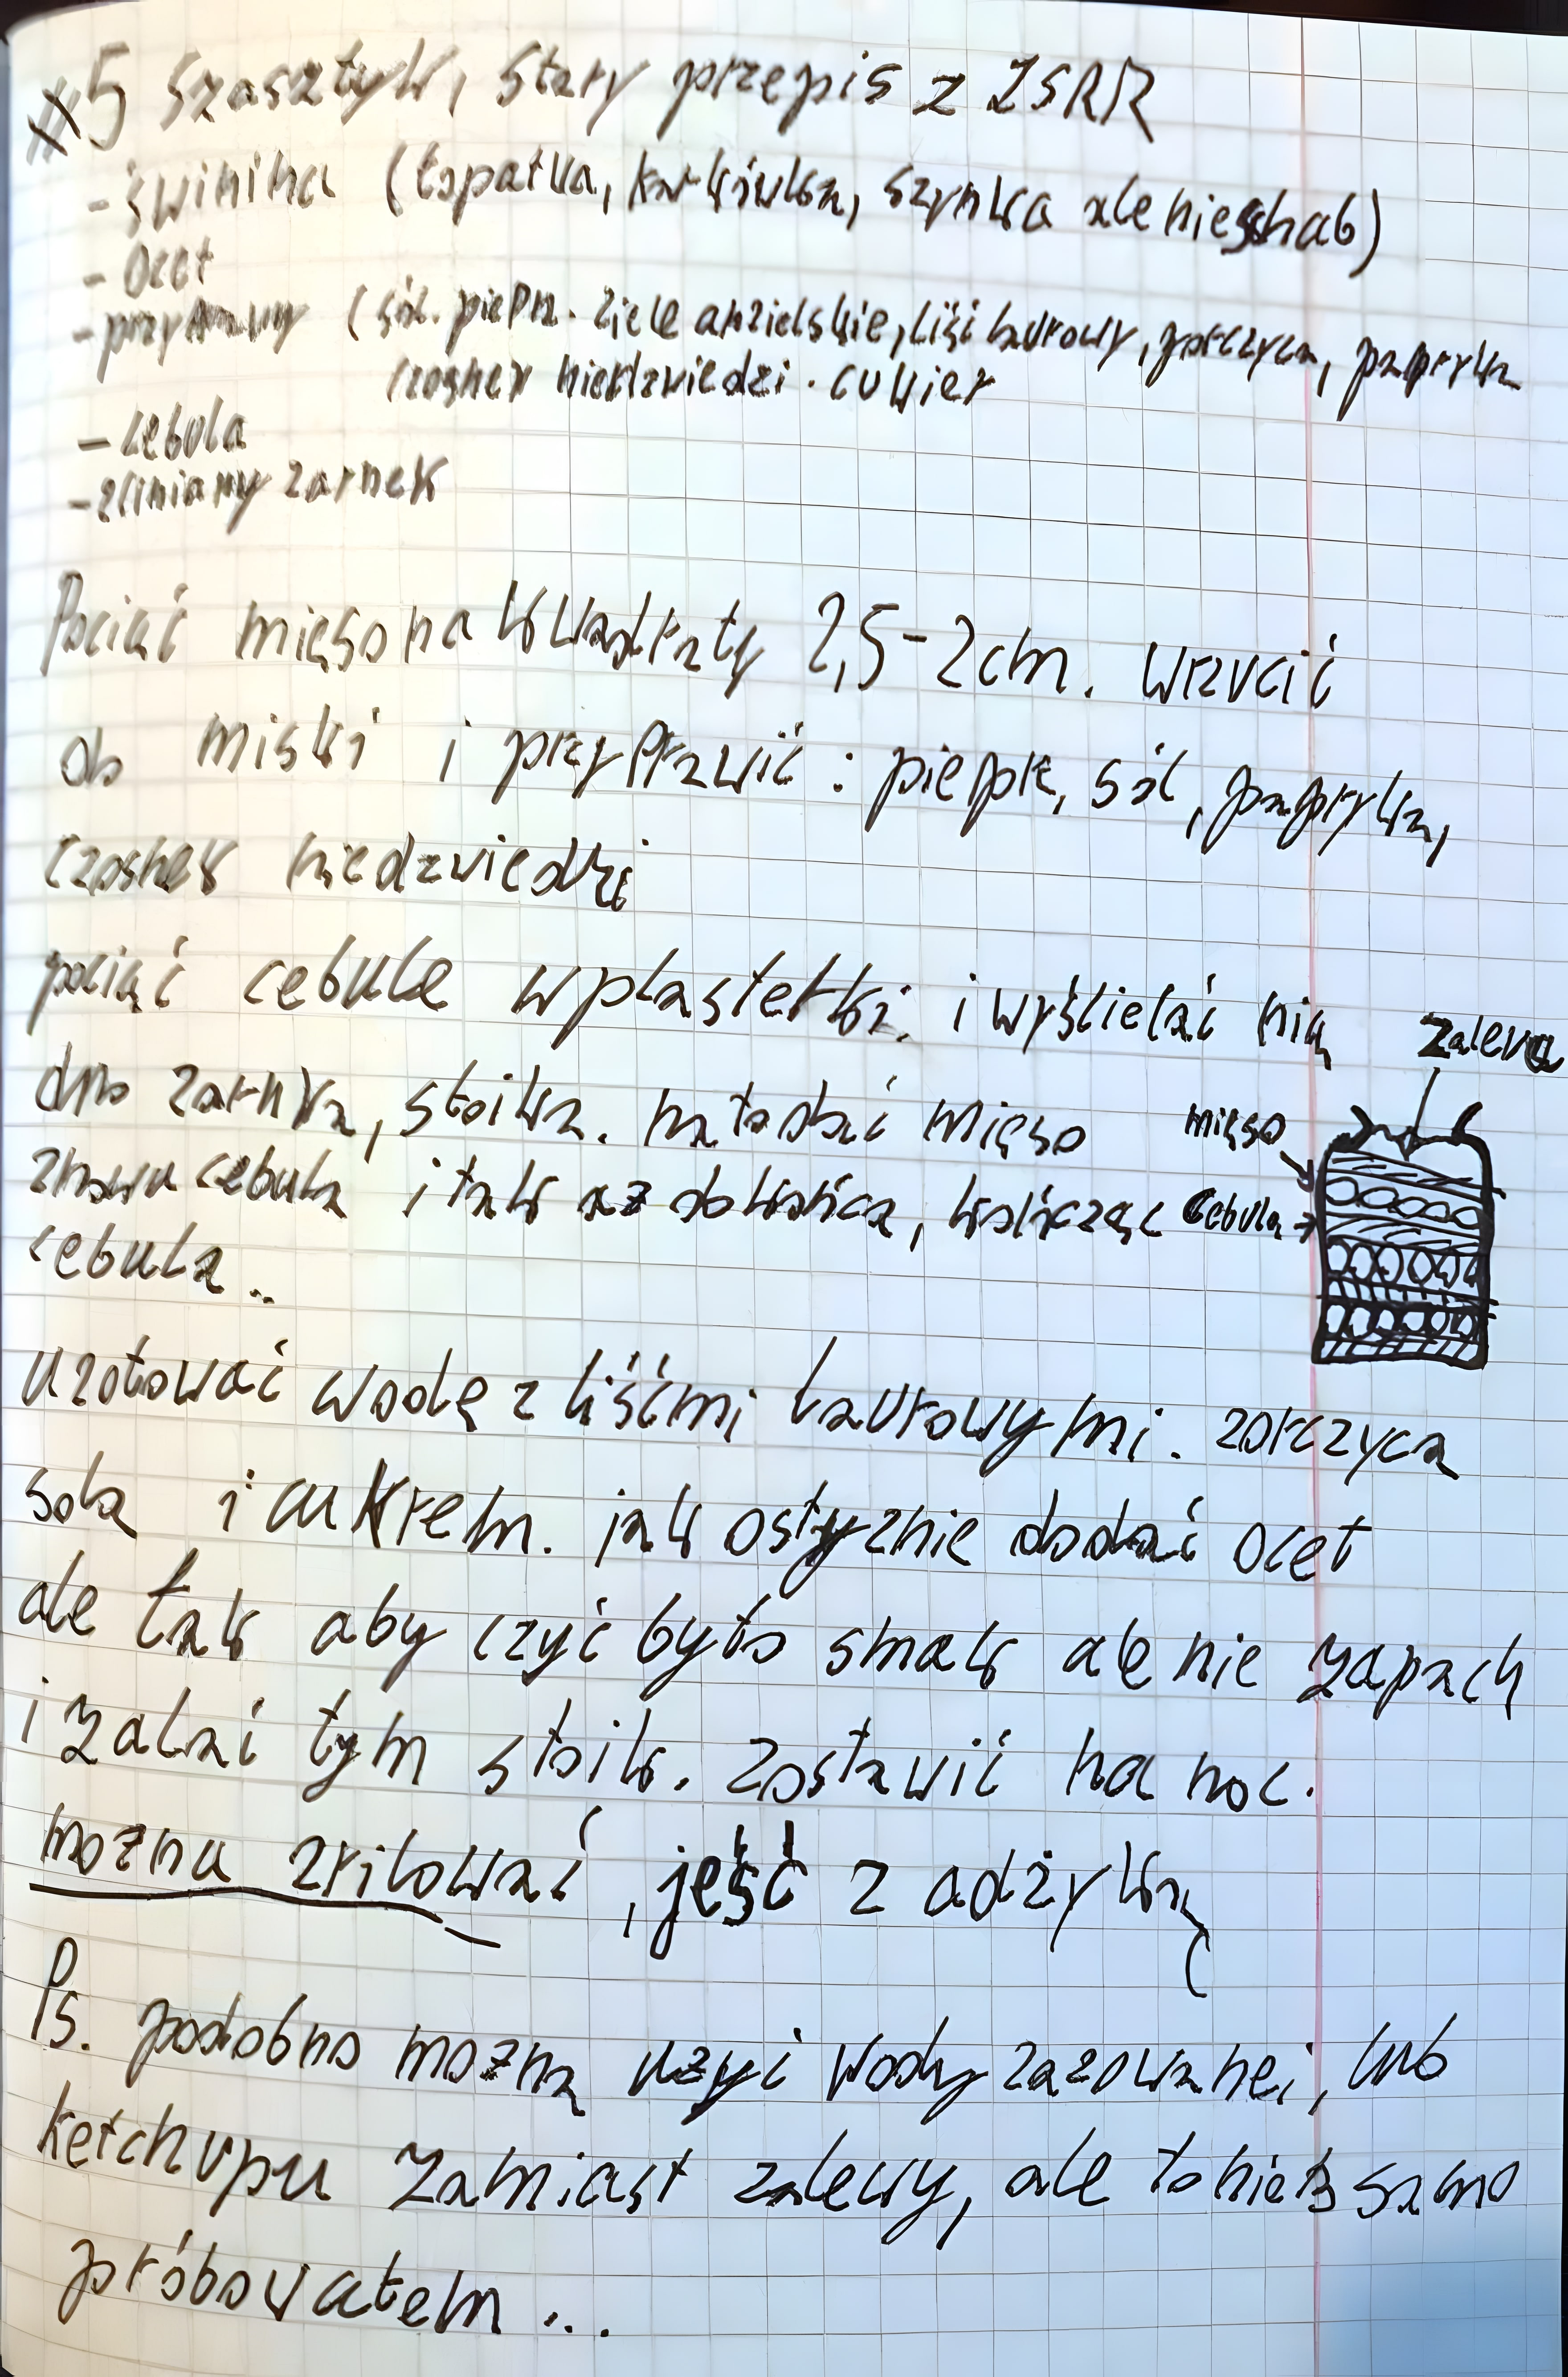 #5 Szasztyk, stary przepis z ZSRR
- świnina (łopatka, karkówka, szynka ale nie schab)
- Ocet
- przyprawy (sól. pieprz. ziele angielskie, liść laurowy, gorczyca, papryka
czosnek niedzwiedzi. cukier
- cebula
- gliniany garnek
Pociąć mięso na kwadraty 2,5-2cm. wrzucić
do miski i przyprawić: pieprz, sól, papryka,
czosnek niedzwiedzi
pociąć cebule w plasterki. i wyścielać nią
dno garnka, słoika. nałodać mięso
znowu cebula i tak az do końca, kończąc
cebula..
zalewa
mięso
cebula
ugotować wodę z liśćmi laurowymi. gorczyca
sola i cukrem. jak ostygnie dodać ocet
ale tak aby czyć było smak ale nie zapach
i zalać tym słoik. Zostawić na noc.
mozna grilować, jeść z adżyką
Ps. podobno mozna uzyć wody gazowanei, lub
ketchupu zamiast zalewy, ale to nie to samo
próbowałem...